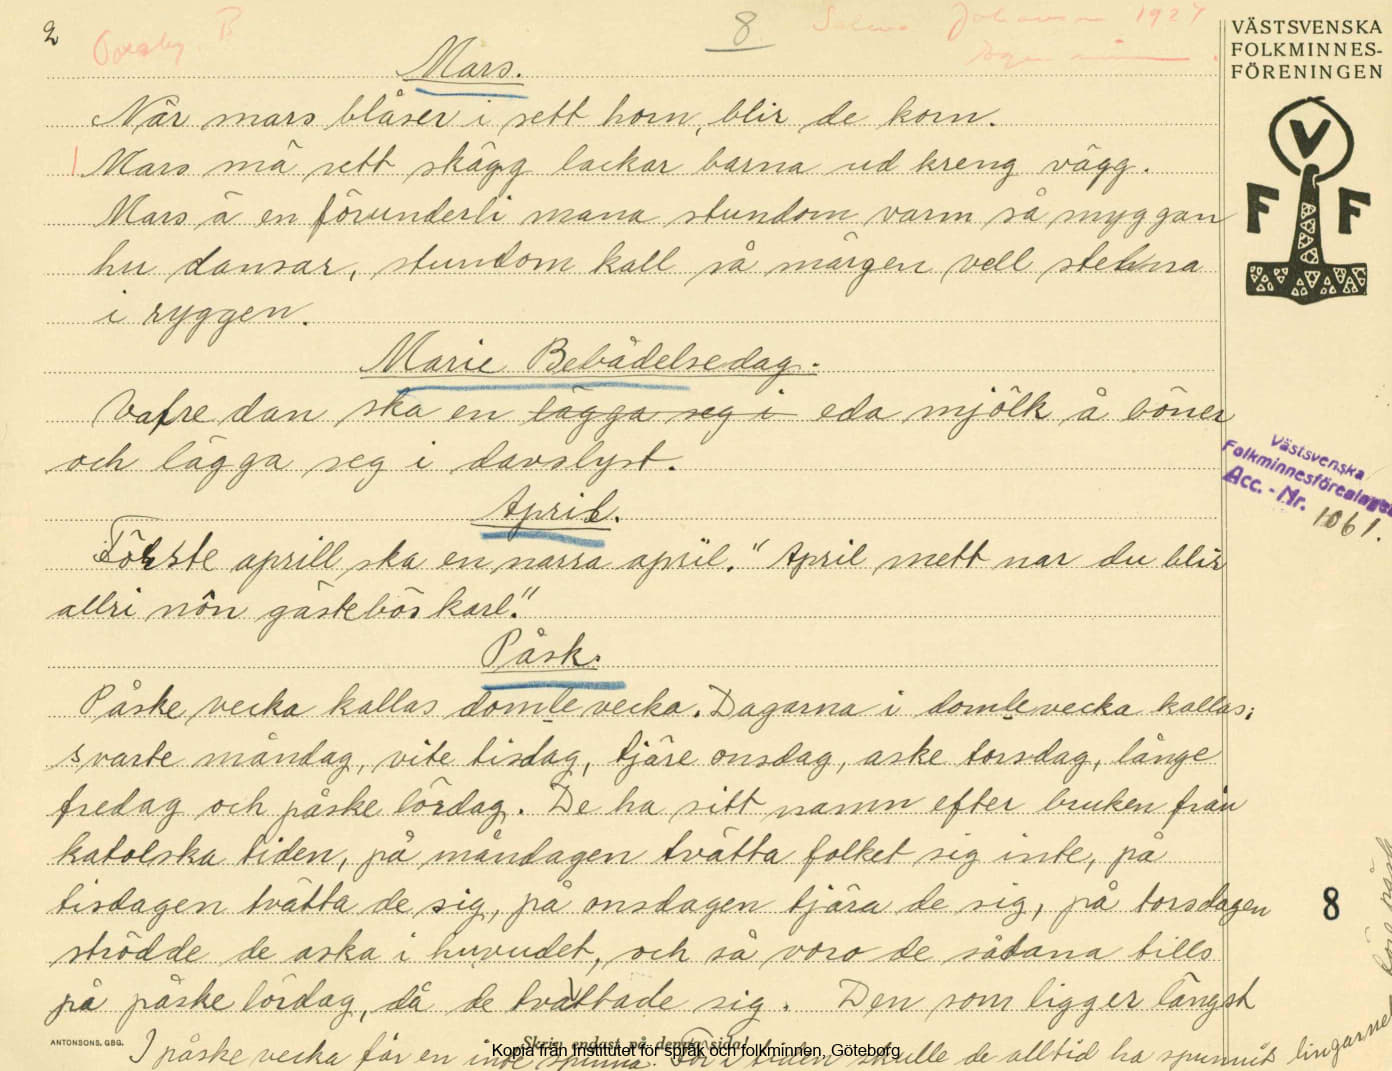 2
8
1927
VÄSTSVENSKA
FOLKMINNES-
FÖRENINGEN
V
F F
Mars.
När mars blåser i sett horn, blir de korn.
Mars mä sett skägg lackar barna ud kreng vägg.
Mars ä en förunderli mana stundom varm så myggan
hu dansar, stundom kall så märgen vell stelna
i ryggen.
Marie Bebådelsedag.
Vafre dan ska en lägga seg i eda mjölk å böner
och lägga seg i davslyst.
Västsvenska
Folkminnesföreningen
Acc. - Nr. 1061.
April.
Förste aprill ska en narra april. "April mett nar du blir
allri nôn gästebös karl."
Påsk.
Påske vecka kallas domle vecka. Dagarna i domle vecka kallas;
svarte måndag, vite tisdag, tjäre onsdag, aske torsdag, långe
fredag och påske lördag. De ha sitt namn efter bruken från
katolska tiden, på måndagen tvätta folket sig inte, på
tisdagen tvätta de sig, på onsdagen tjära de sig, på torsdagen
strödde de aska i huvudet, och så voro de sådana tills
på påske lördag, då de tvättade sig. Den som ligger längst
8
ANTONSONS, GBG.
Skriv endast på denna sida!
I påske vecka får en inte spinna. För i tiden skulle de alltid ha spunnit lingarnet före påsk
Kopia från Institutet för språk och folkminnen, Göteborg